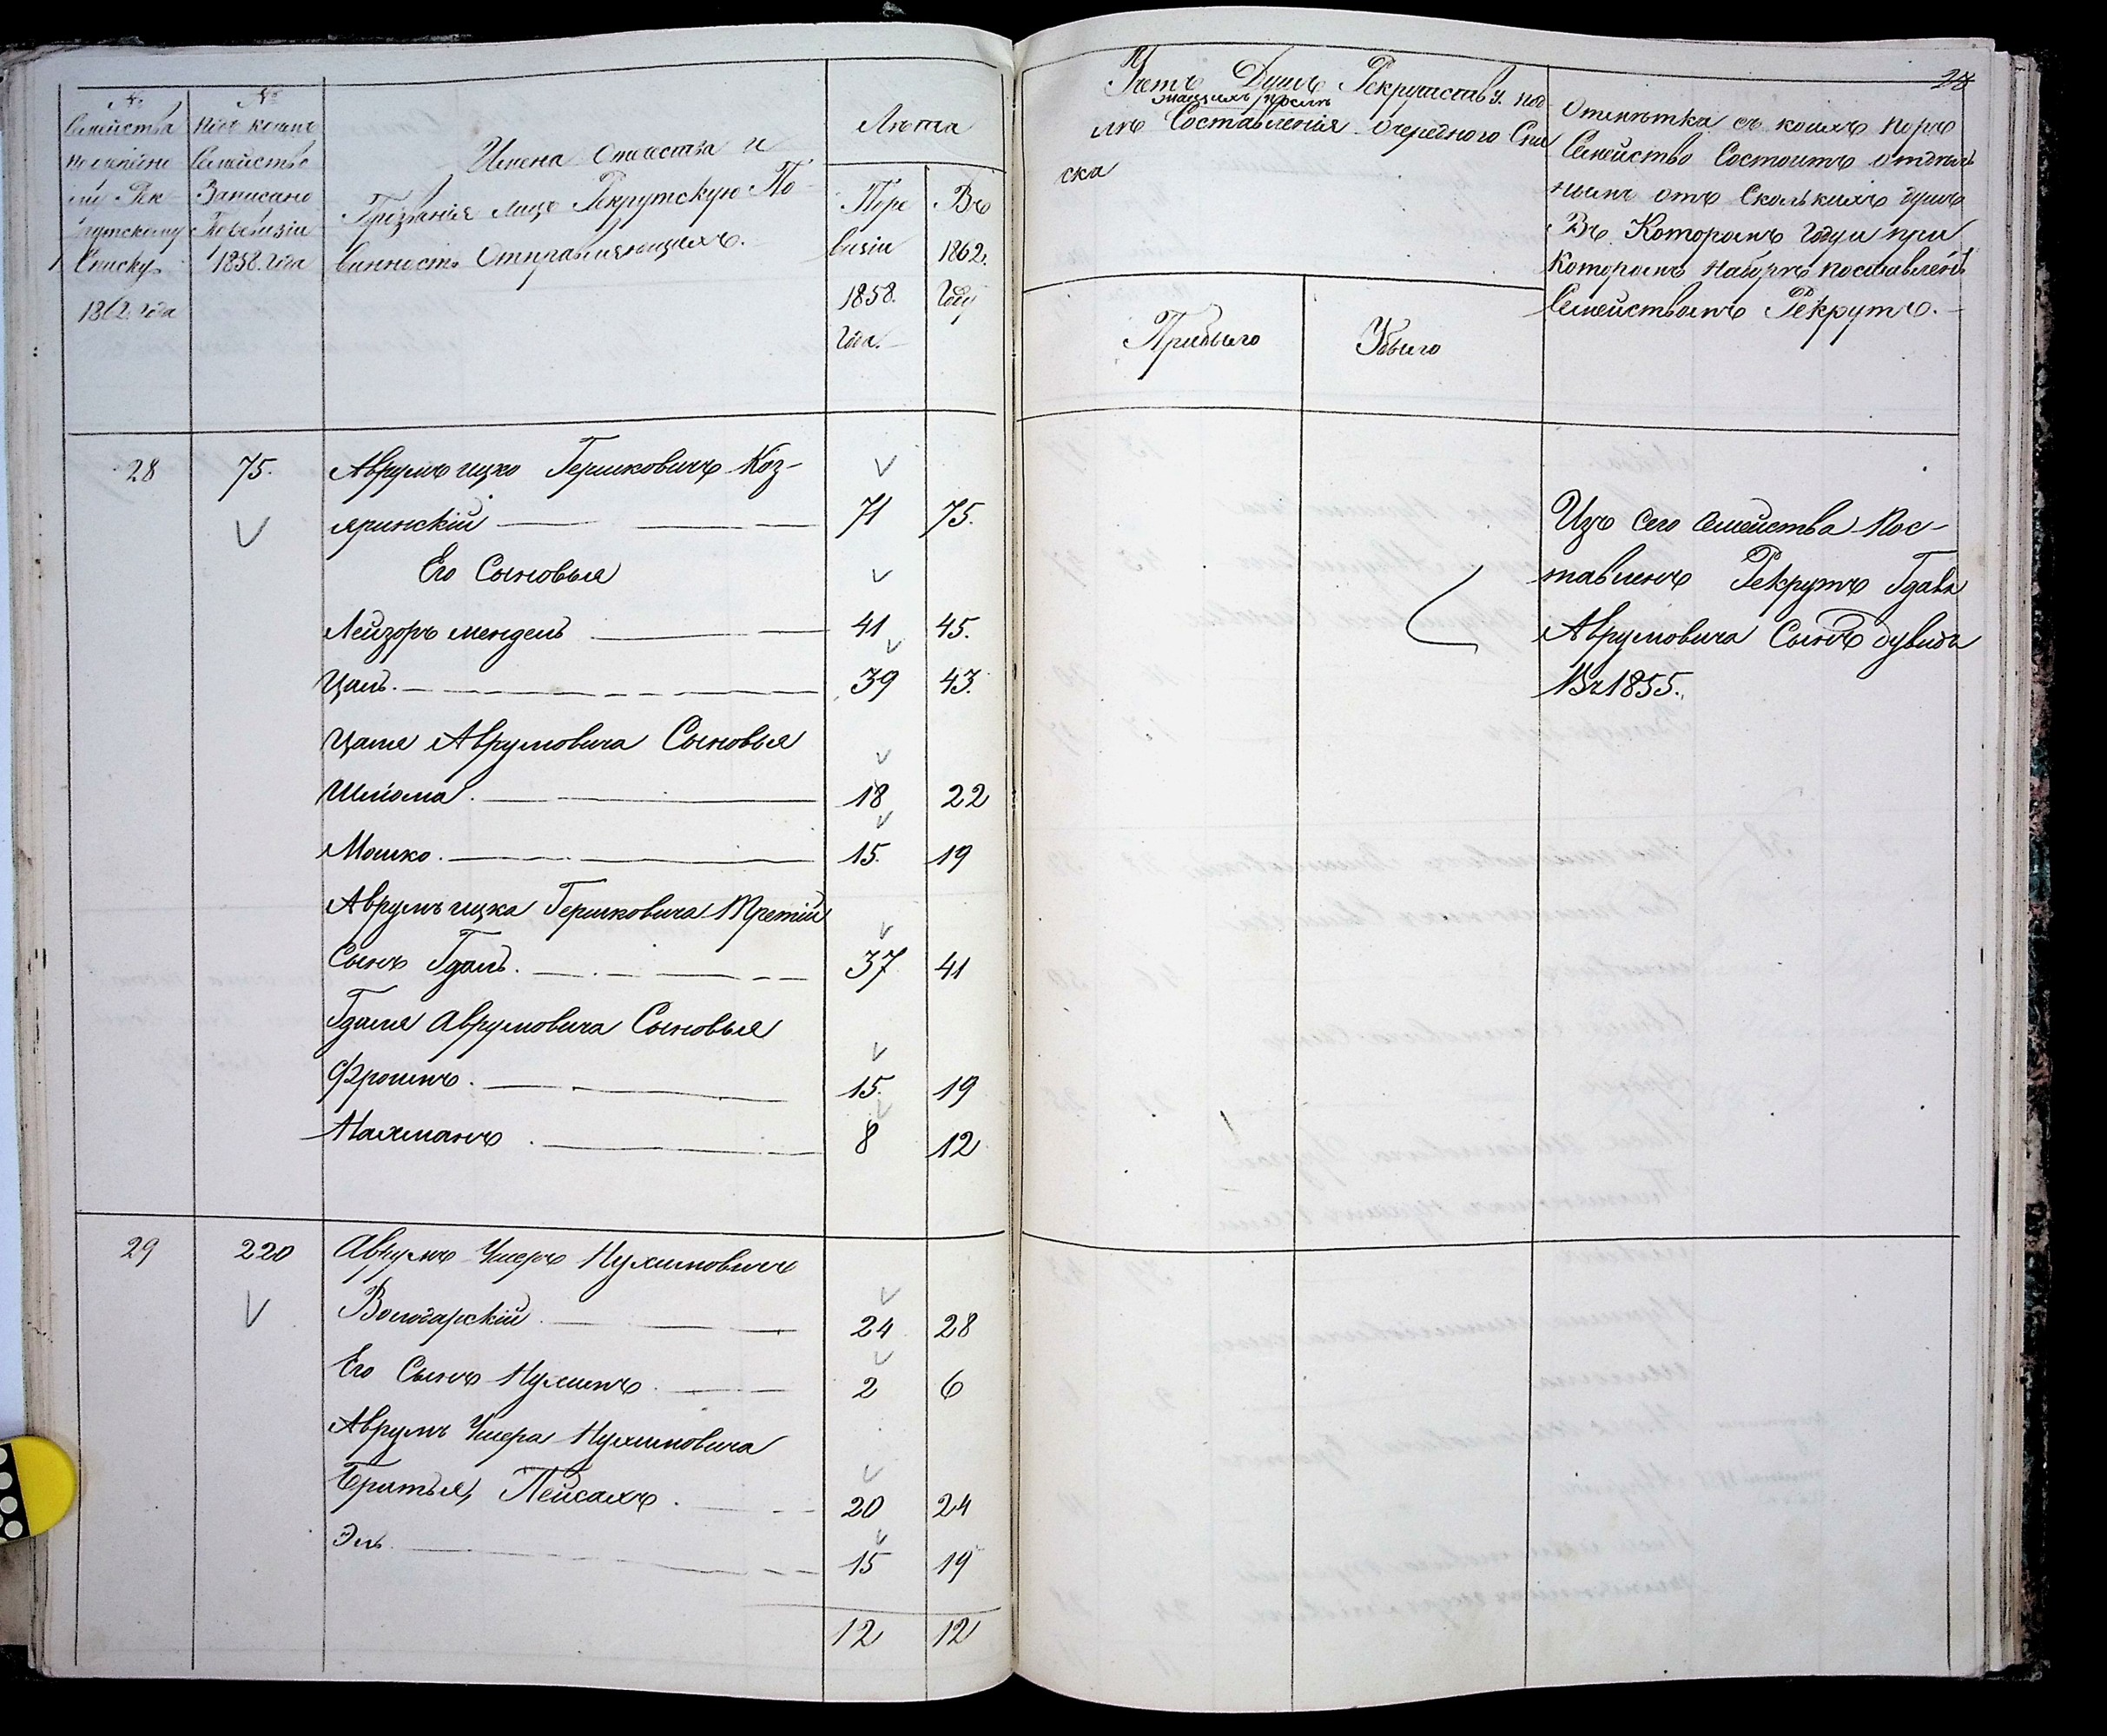 №
Семейства
по очередно
му Рек
рутскому
Списку
1862. года
№
подъ коимъ
Семейство
Записано
Поревизіи
1858. года
Имена отчества и
Прозванія лицъ Рекрутскую По-
винность Отправляющихъ.
Лѣта
Поре
визіи
1858.
Года.
Въ
1862.
Году
28 75. Аврумъ ицко Гершковичъ Коз-
яринскій 71 75.
Его Сыновья
Лейзоръ мендель 41 45.
Цаль. 39 43.
Цаля Аврумовича Сыновья
Шлiома. 18 22
Мошко. 15. 19
Аврумъ ицка Гершковича Третій
Сынъ Гдаль. 37 41
Гдаля Аврумовича Сыновья
Фроимъ. 15. 19
Нахманъ. 8 12
29 220 Аврумъ Ушеръ Нухимовичъ
Вологарскій. 24 28
Его Сынъ Нухимъ. 2 6
Аврумъ Ушера Нухимовича
Братья, Пейсахъ. 20 24
Эль. 15 19
12 12
28
Учетъ Душъ Рекрутству под-
лежащихъ послѣ
Составленія очереднаго Спи
ска
Прибыло
Убыло
Отмѣтка съ коихъ поръ
Семейство Состоитъ отдѣль
нымъ отъ Сколькихъ душъ
Въ Которомъ Году и при
Которомъ Наборѣ поставленъ
Семействомъ Рекрутъ.
Изъ сего Семейства Пос-
тавленъ Рекрутъ Гдаля
Аврумовича Сынъ дувидъ
Въ 1855.